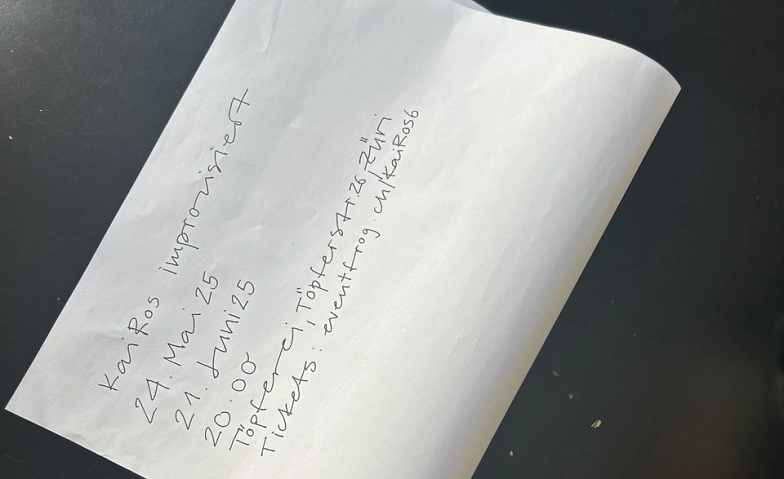 KaiRos improvisiert
24. Mai 25
21. Juni 25
20.00
Töpferei, Töpferstr. 26 Züri
Tickets: eventfrog.ch/KaiRos6